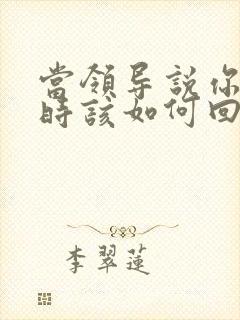 當領导説你
時該如何回
李翠蓮